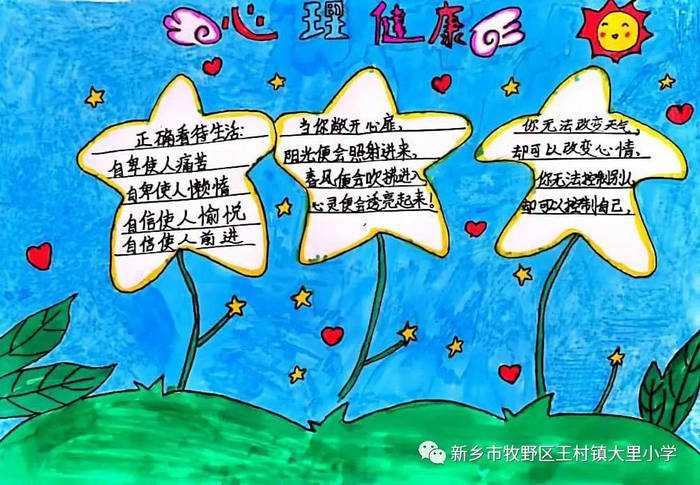 心理健康
正确看待生活:
自卑使人痛苦
自卑使人懒惰
自信使人愉悦
自信使人前进
当你敞开心扉,
阳光便会照射进来,
春风便会吹拂进入
心灵便会透亮起来!
你无法改变天气,
却可以改变心情,
你无法控制别人
却可以控制自己,
新乡市牧野区王村镇大里小学